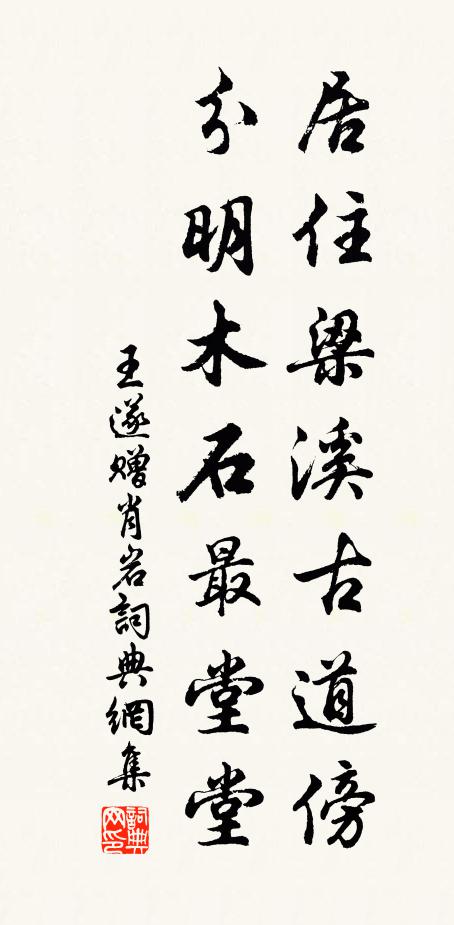 居住梁溪古道傍
分明木石最堂堂
王遂赠肖岩詞典網集
詞典网印